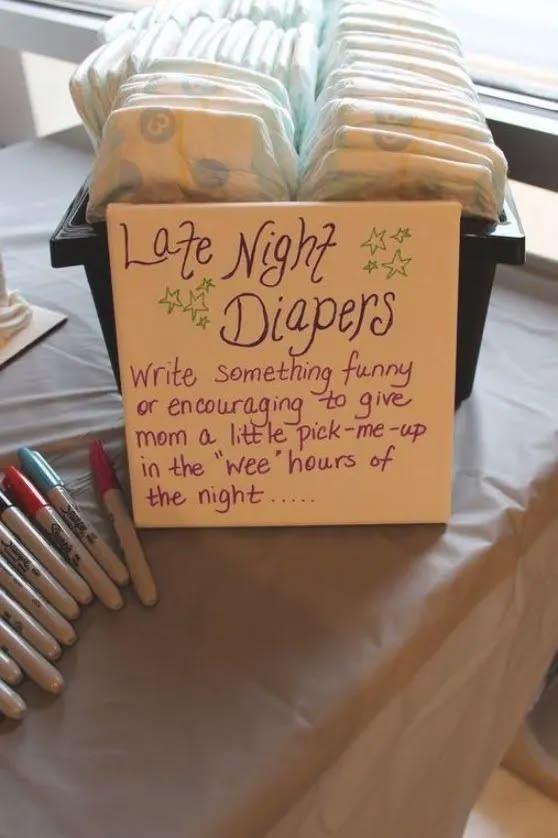 Late Night
Diapers
Write something funny
or encouraging to give
mom a little pick-me-up
in the "wee" hours of
the night.....
Sharpie
Sharpie
Sharpie